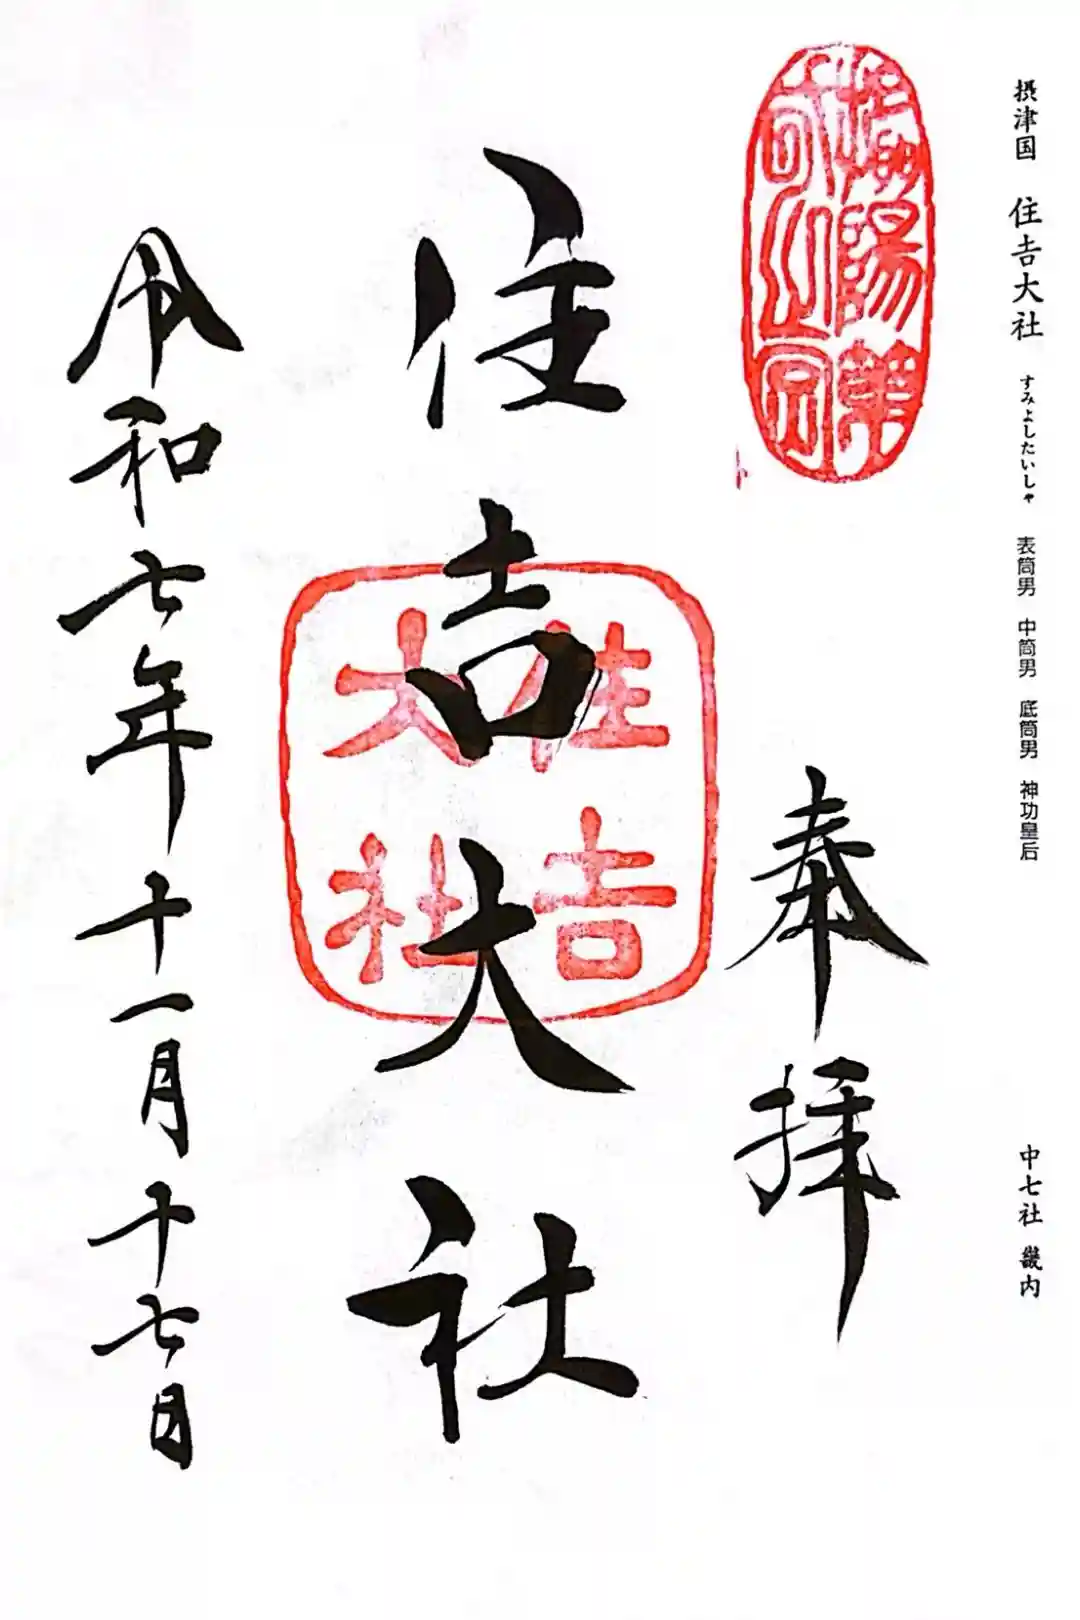 摂津国 住吉大社 すみよしたいしゃ 表筒男 中筒男 底筒男 神功皇后
中七社 畿内
奉拝
住吉大社
住吉
大社
令和七年十一月十七日